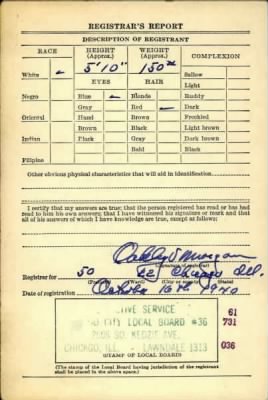 REGISTRAR'S REPORT
DESCRIPTION OF REGISTRANT
RACE HEIGHT (Approx.) WEIGHT (Approx.) COMPLEXION
White 5'10" 150 Sallow
EYES HAIR Light
Negro Blue Blonde Ruddy
Gray Red Dark
Oriental Hazel Brown Freckled
Brown Black Light brown
Indian Black Gray Dark brown
Bald Black
Filipino
Other obvious physical characteristics that will aid in identification
I certify that my answers are true; that the person registered has read or has had
read to him his own answers; that I have witnessed his signature or mark and that
all of his answers of which I have knowledge are true, except as follows:
Morgan
(Signature of registrar)
Registrar for 50 Chicago Ill.
(Precinct) (Ward) (City or county) (State)
Date of registration October 16th 1940
TIVE SERVICE
CITY LOCAL BOARD #36
KEDZIE AVE.
CHICAGO, ILL. - LAWNDALE 1313
61
731
036
(STAMP OF LOCAL BOARD)
(The stamp of the Local Board having jurisdiction of the registrant
shall be placed in the above space.)